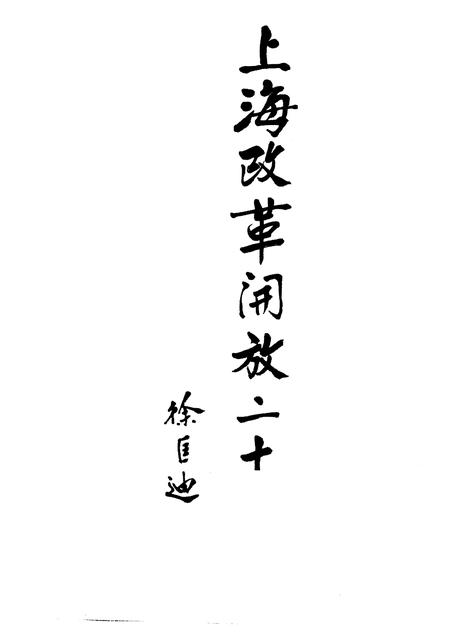 上海改革開放二十
徐匡迪